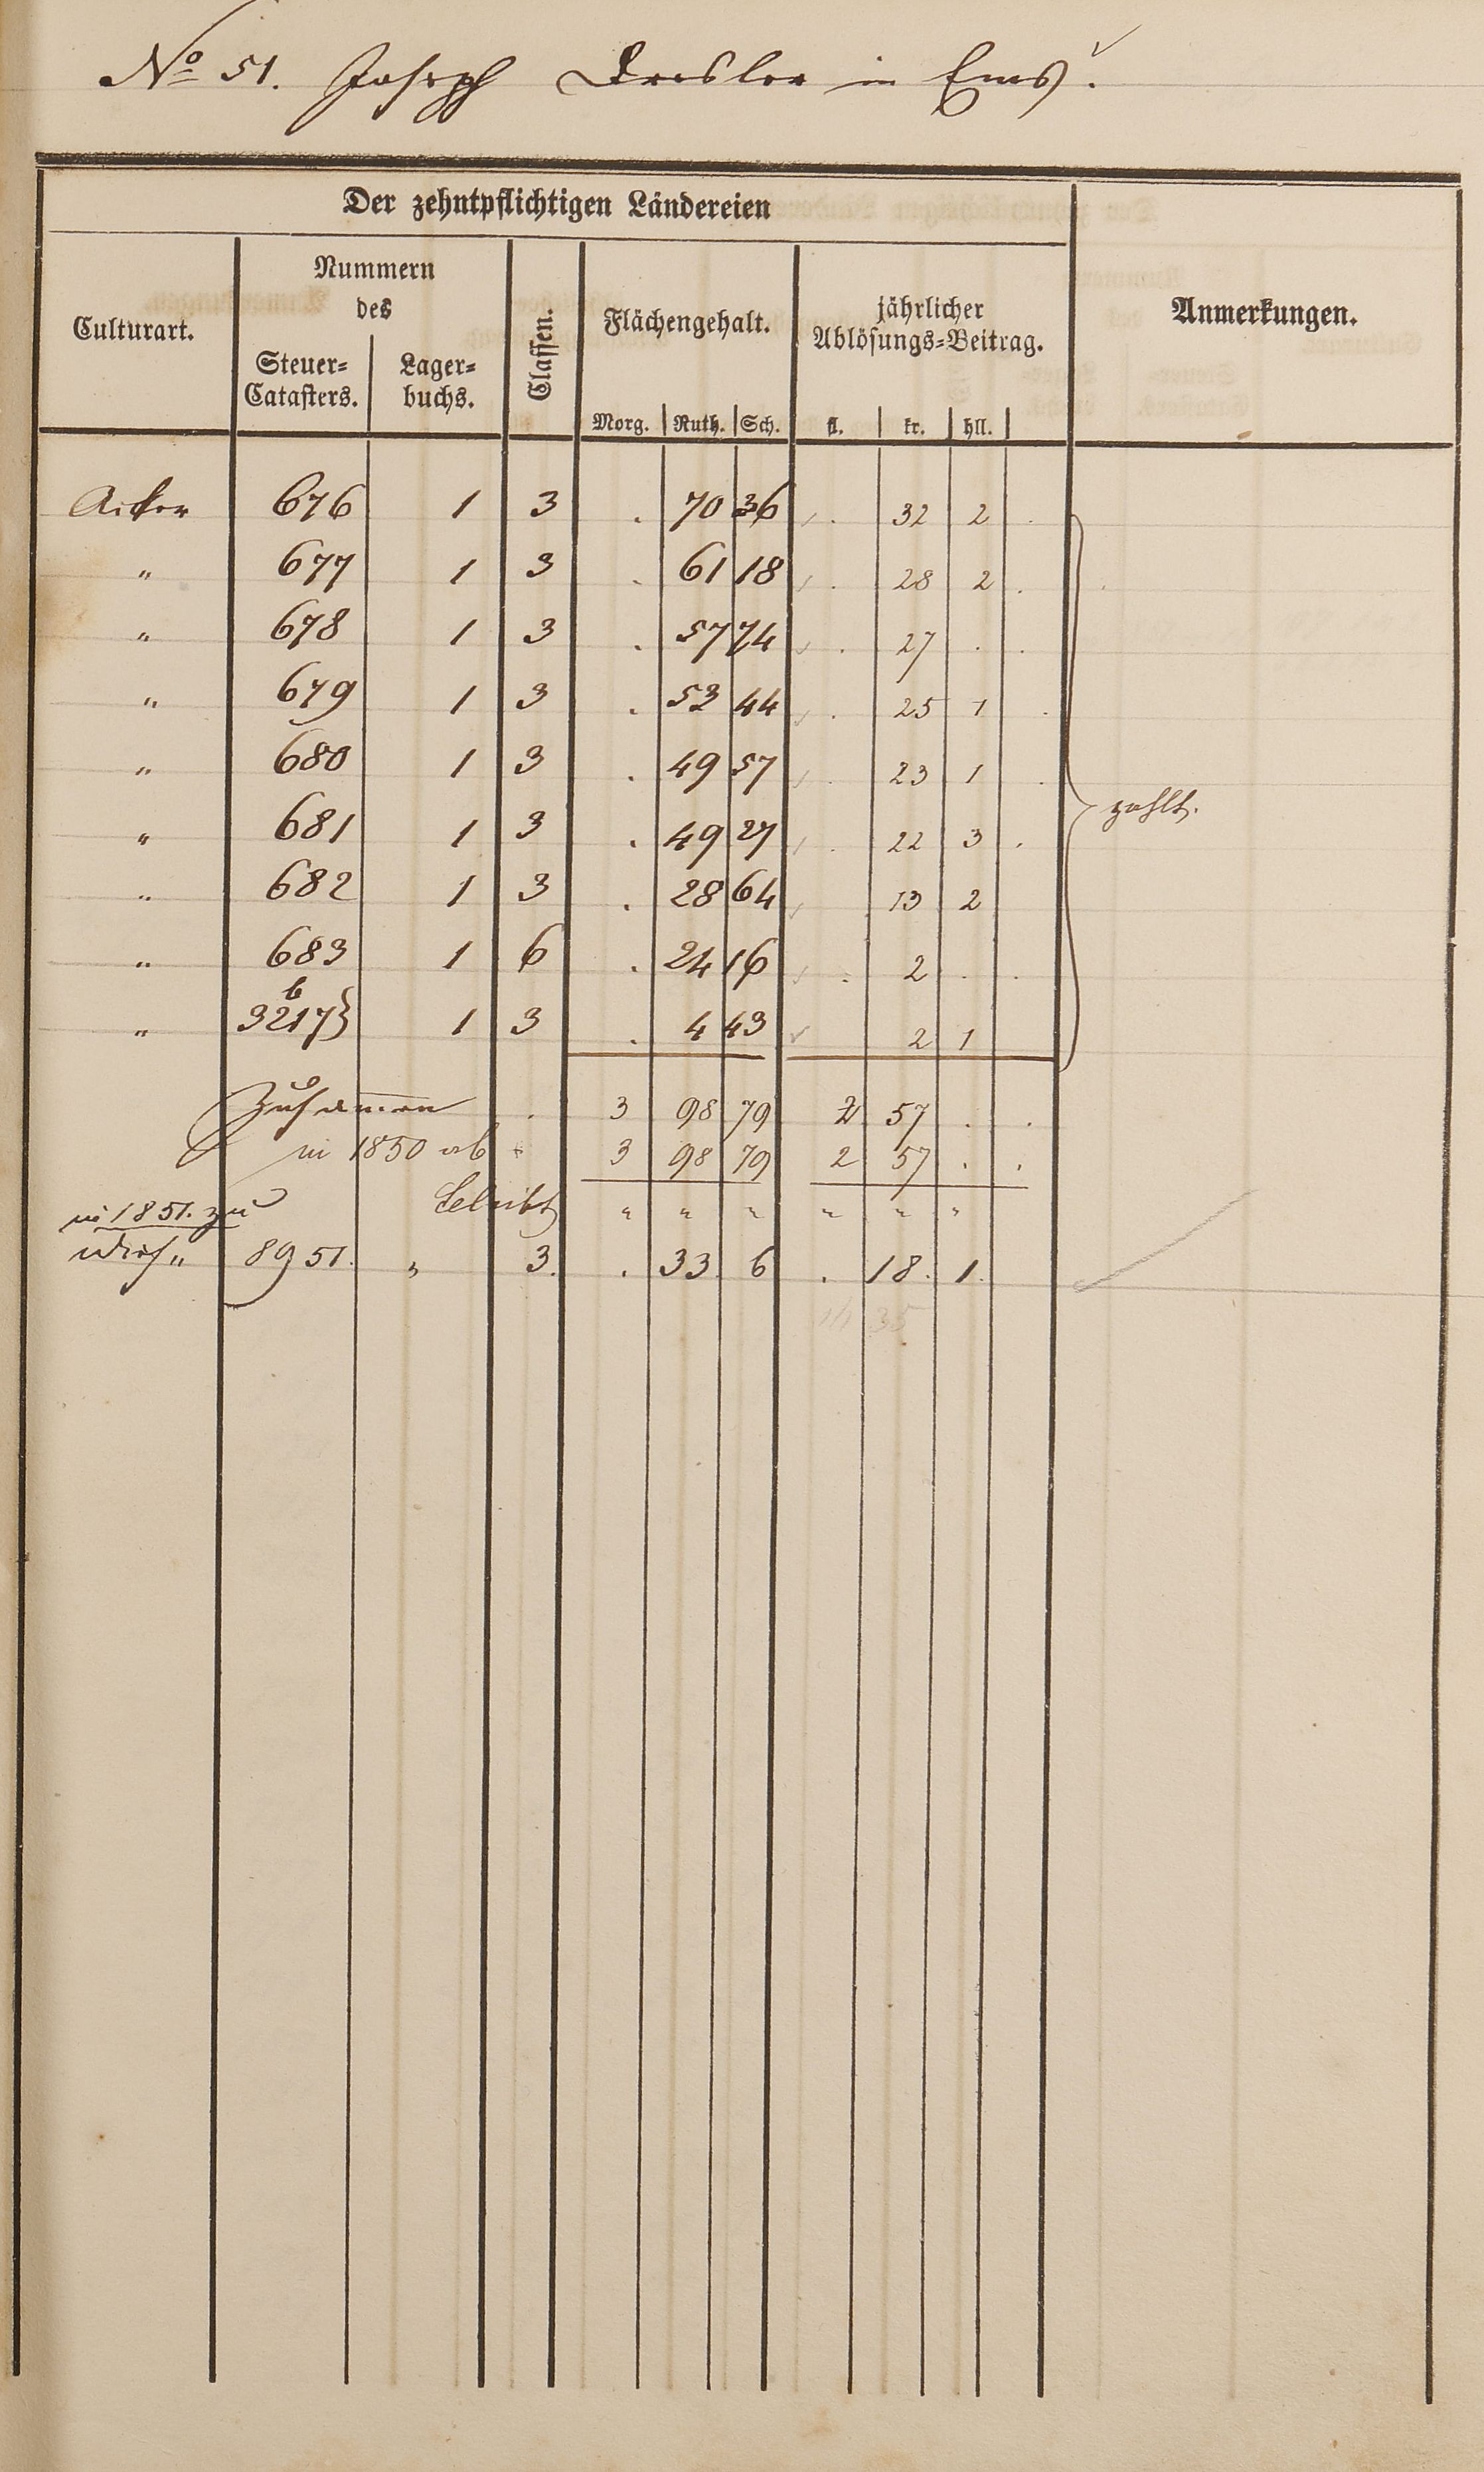 No 51. Joseph Dresler in Ems.
Der zehntpflichtigen Ländereien
Culturart.
Nummern
des
Steuer=
Catasters.
Lager=
buchs.
Classen.
Flächengehalt.
Morg. Ruth. Sch.
jährlicher
Ablösungs=Beitrag.
fl. kr. hll.
Anmerkungen.
Acker 676 1 3 . 70 36 . 32 2 .
" 677 1 3 . 61 18 . 28 2 .
" 678 1 3 . 57 74 . 27 . .
" 679 1 3 . 53 44 . 25 1 .
" 680 1 3 . 49 57 . 23 1 .
" 681 1 3 . 49 27 . 22 3 .
" 682 1 3 . 28 64 13 2
" 683 1 6 . 24 16 . 2 . .
" 3217 b 1 3 . 4 43 2 1
zahlt.
Zusammen . 3 98 79 2 57 . .
in 1850 ab 3 98 79 2 57 . .
bleibt " " " " " "
in 1851. zu
8951. " 3. . 33 6 . 18. 1.